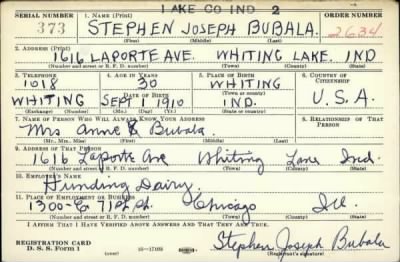 LAKE CO IND 2
SERIAL NUMBER 1. NAME (Print) ORDER NUMBER
373 STEPHEN JOSEPH BUBALA. 2634
(First) (Middle) (Last)
2. ADDRESS (Print)
1616 LAPORTE AVE. WHITING LAKE. IND
(Number and street or R. F. D. number) (Town) (County) (State)
3. TELEPHONE 4. AGE IN YEARS 5. PLACE OF BIRTH 6. COUNTRY OF CITIZENSHIP
1018 30 WHITING
WHITING SEPT 1, 1910 IND. U.S.A.
DATE OF BIRTH
(Exchange) (Number) (Mo.) (Day) (Yr.) (State or country)
7. NAME OF PERSON WHO WILL ALWAYS KNOW YOUR ADDRESS 8. RELATIONSHIP OF THAT PERSON
Mrs Anne Bubala.
(Mr., Mrs., Miss) (First) (Middle) (Last)
9. ADDRESS OF THAT PERSON
1616 Laporte Ave Whiting Lake Ind.
(Number and street or R. F. D. number) (Town) (County) (State)
10. EMPLOYER'S NAME
Dairy.
11. PLACE OF EMPLOYMENT OR BUSINESS
1300-E 71 Chicago Ill.
(Number and street or R. F. D. number) (Town) (County) (State)
I AFFIRM THAT I HAVE VERIFIED ABOVE ANSWERS AND THAT THEY ARE TRUE.
REGISTRATION CARD
D. S. S. Form 1 (over) 16-17105 Stephen Joseph Bubala
(Registrant's signature)